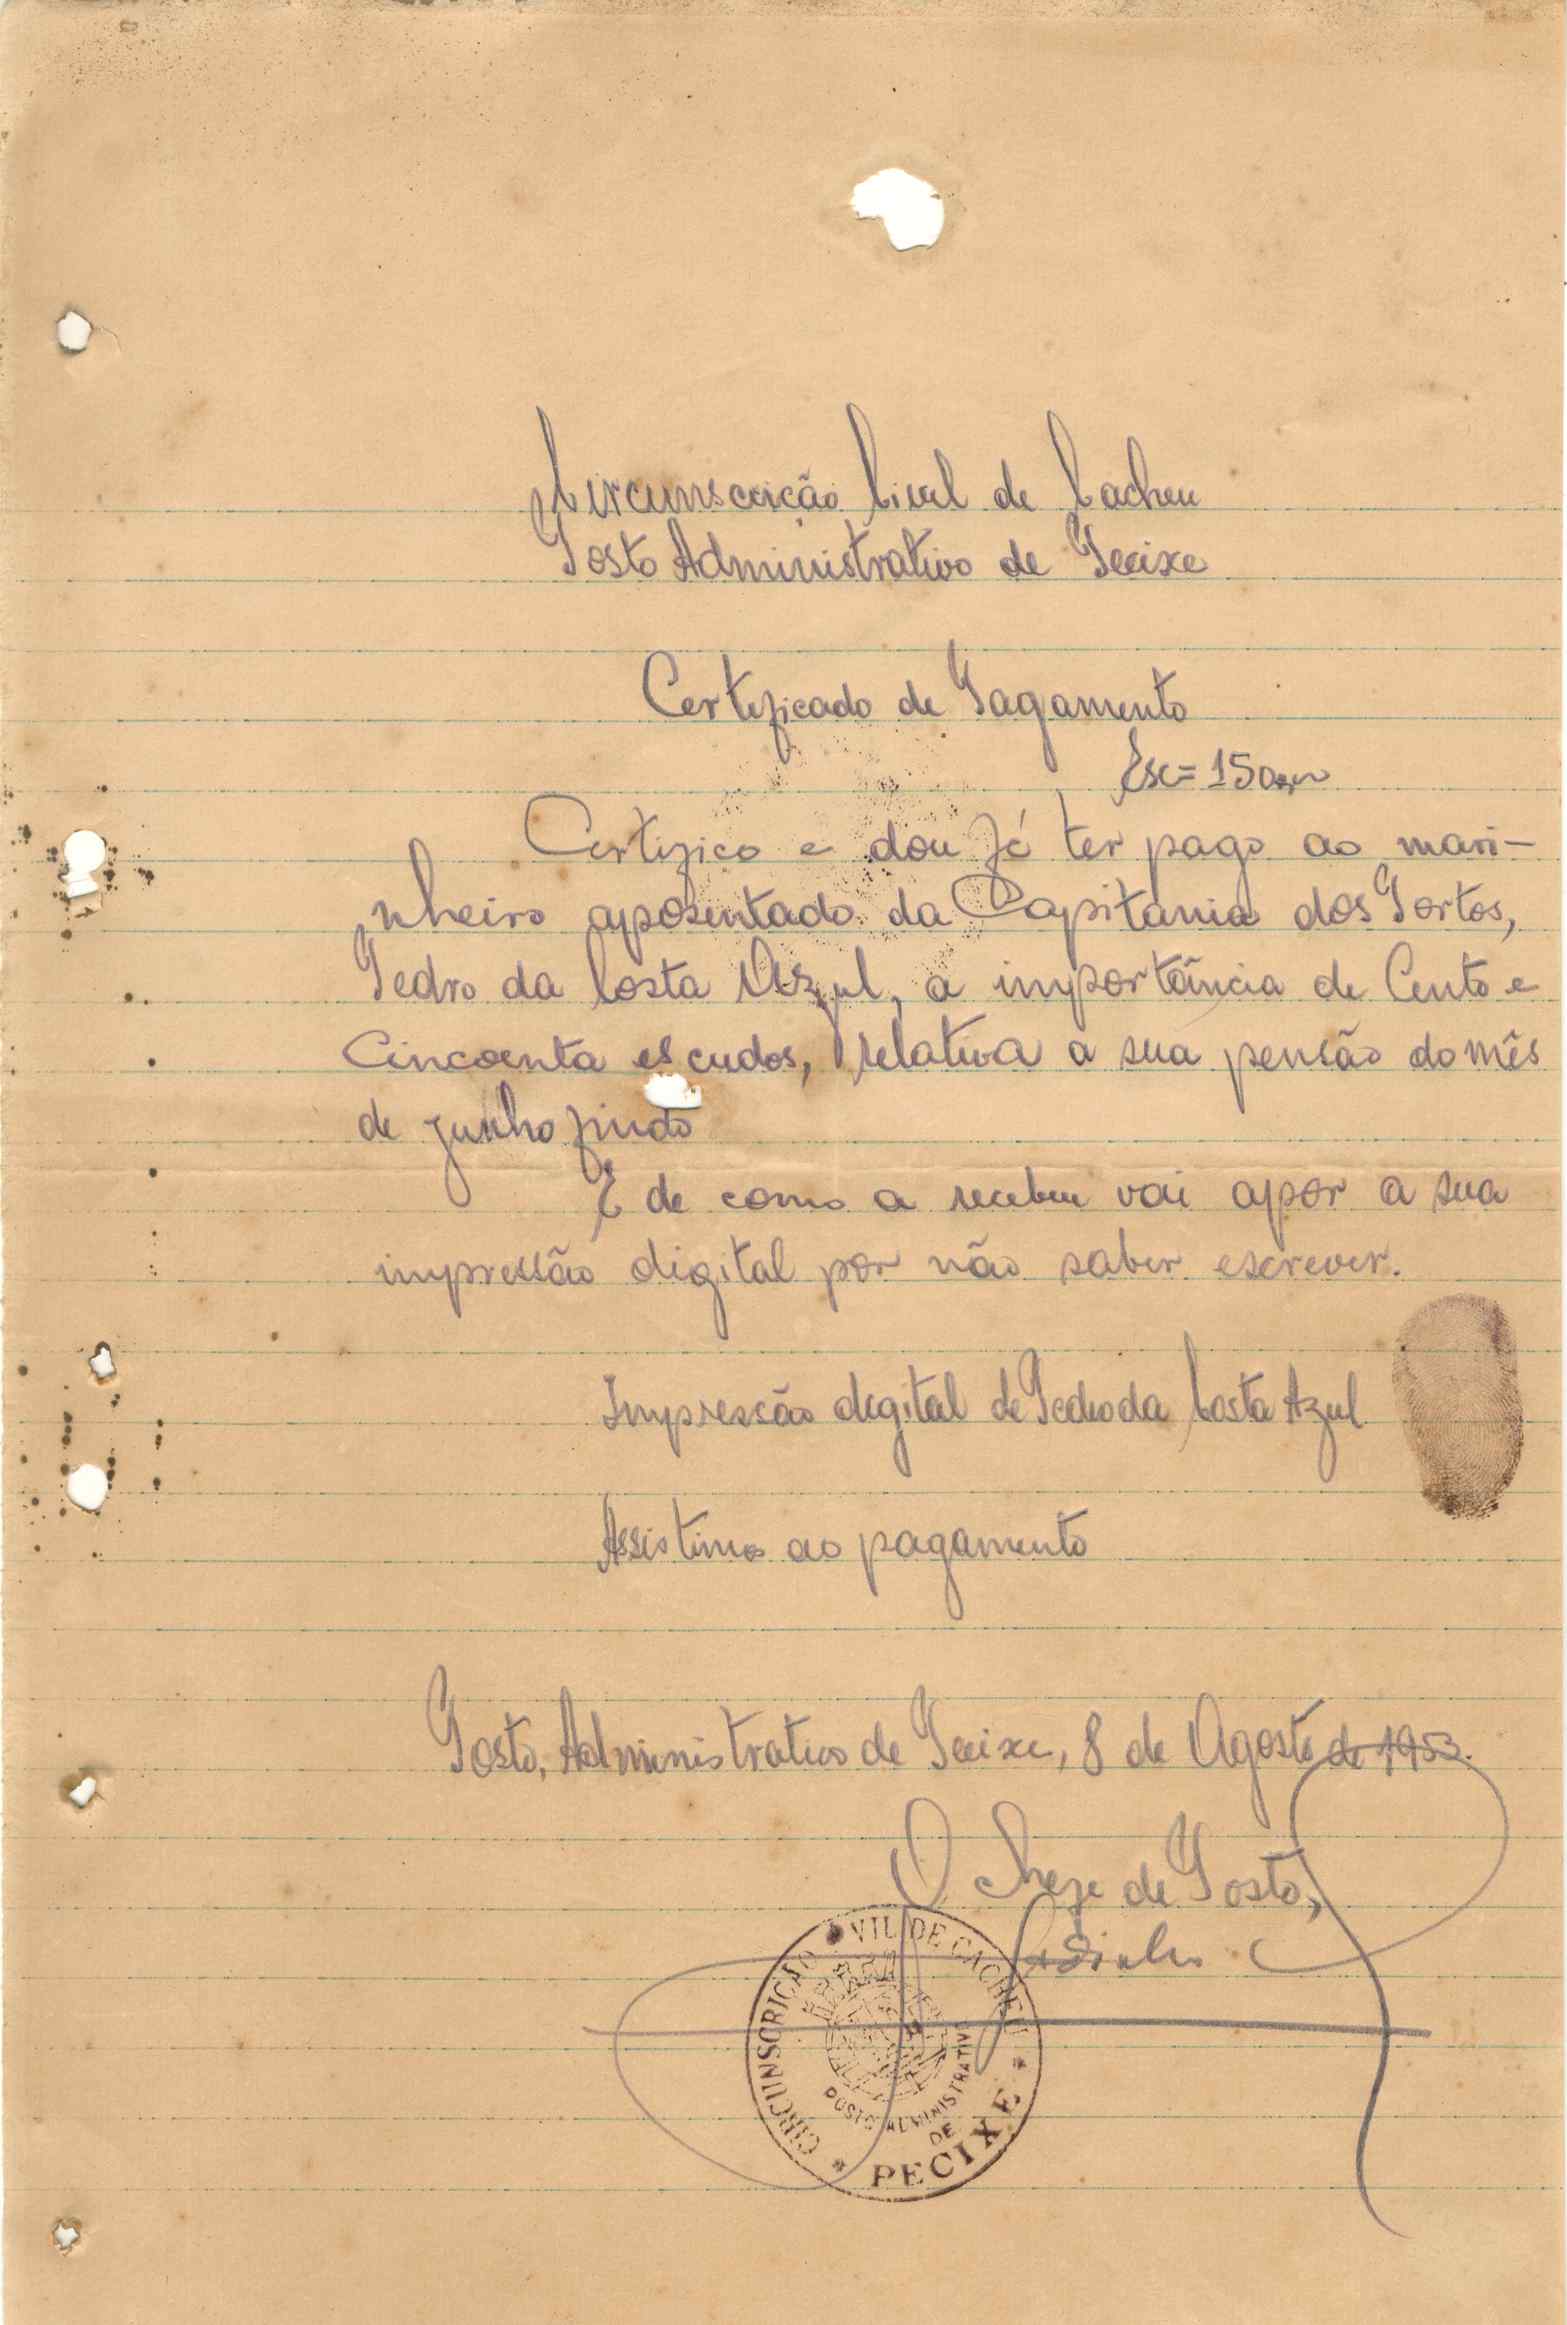 Circunscrição Civil de Cacheu
Posto Administrativo de Pecixe
Certificado de Pagamento
Esc=150
Certifico e dou fé ter pago ao mari-
nheiro aposentado da Capitania dos Portos,
Pedro da Costa Azul, a importância de Cento e
Cincoenta escudos, relativa a sua pensão do mês
de junho findo
E de como a recebeu vai apor a sua
impressão digital por não saber escrever.
Impressão digital de Pedro da Costa Azul
Assistimos ao pagamento
Posto, Administrativo de Pecixe, 8 de Agosto de 1953.
O Chefe de Posto,
CIRCUNSCRIÇÃO CIVIL DE CACHEU
POSTO ADMINISTRATIVO
DE
PECIXE